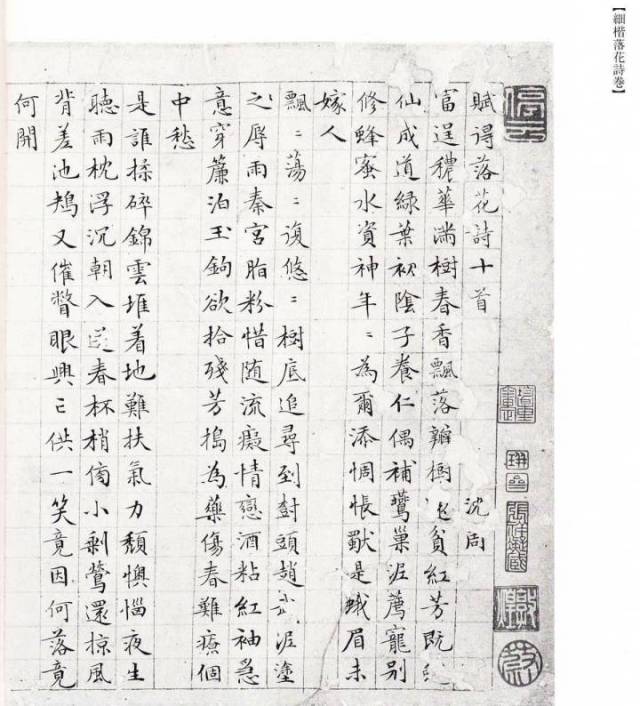 【細楷落花詩卷】
賦得落花詩十首
沈周
富逞穠華滿樹春香飄落瓣樹貧紅芳既
仙成道綠葉初陰子養仁偶補鶯巢泥薦寵別
修蜂蜜水資神年〻為爾添惆悵獃是蛾眉未
嫁人
飄〻蕩〻復悠〻樹底追尋到樹頭趙武泥塗
之辱雨秦宮脂粉惜随流癡情戀酒粘紅袖急
意穿簾泊玉鉤欲拾殘芳搗為藥傷春難療個
中愁
是誰揉碎錦雲堆着地難扶氣力頹懊惱夜生
聽雨枕浮沉朝入送春杯梢傍小剩鶯還掠風
背差池鴂又催瞥眼興亡供一笑竟因何落竟
何開